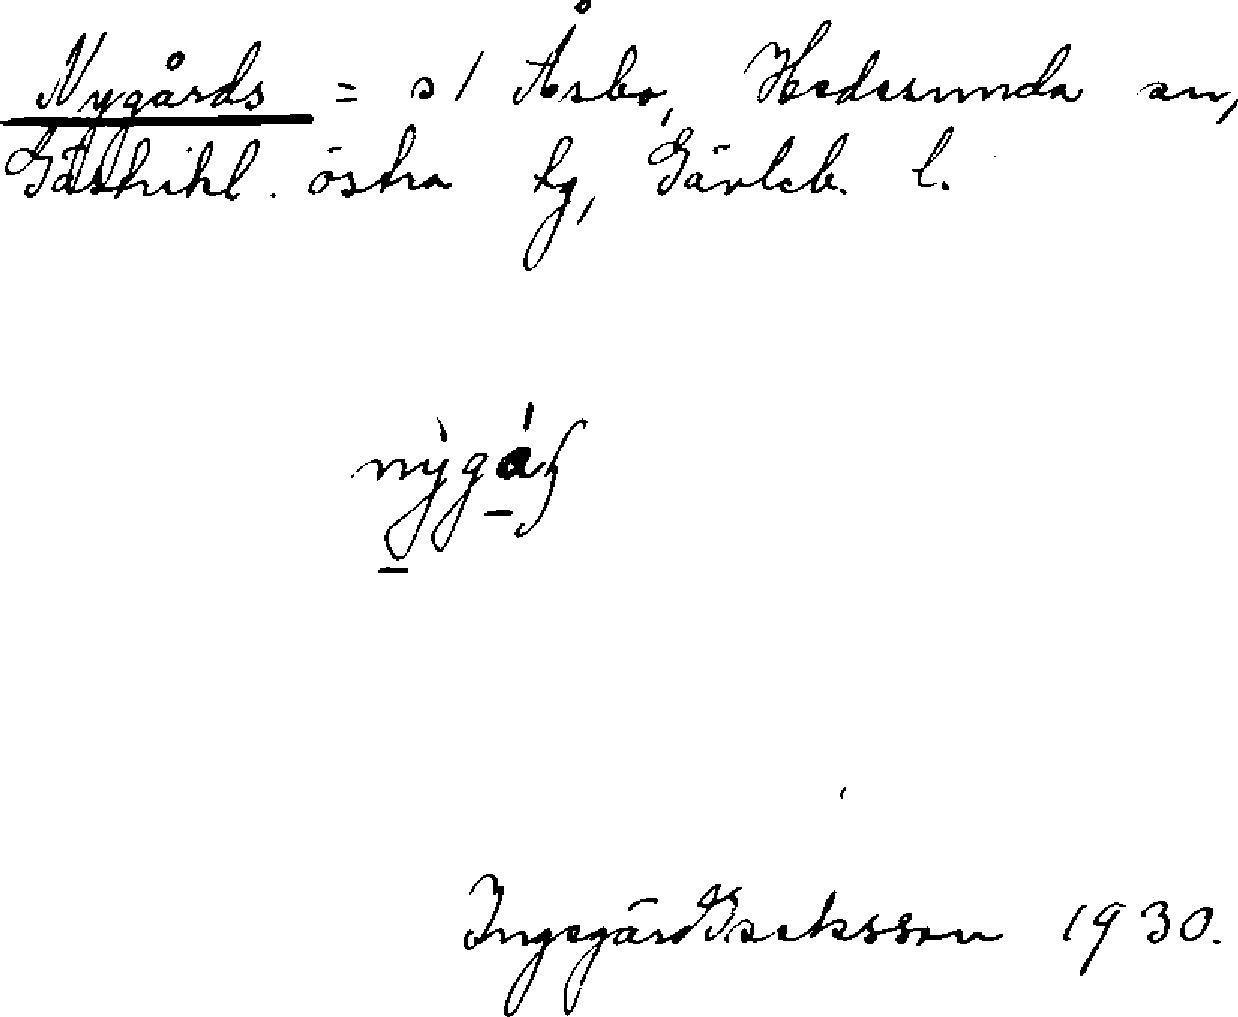 Nygårds = s/ Åsbo, Hedesunda sn,
Gästrikl. östra tg, Gävleb. l.
Ingegärd Isaksson 1930.